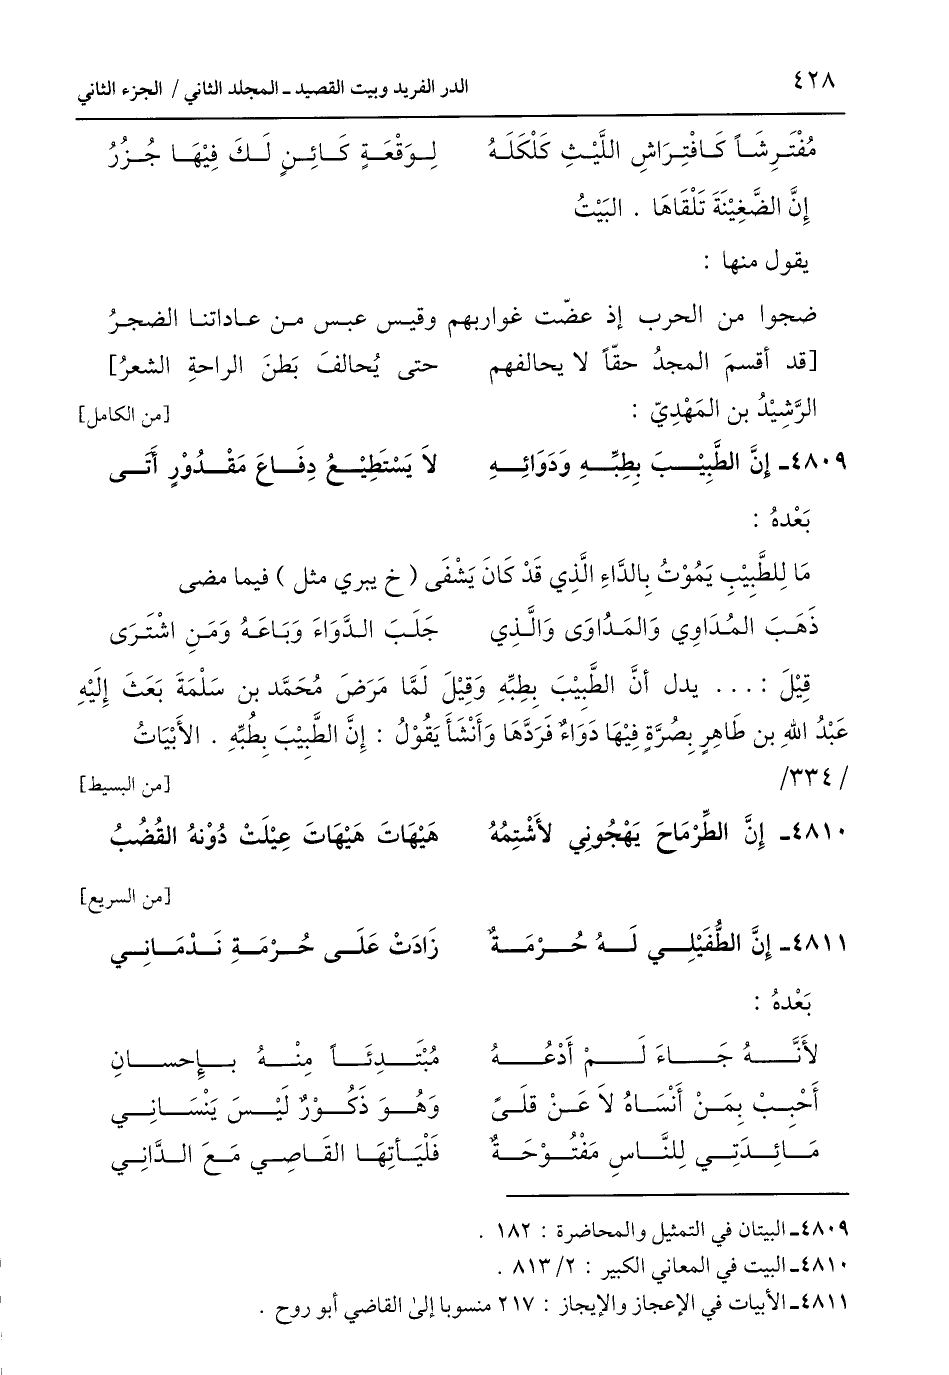 ٤٢٨ الدر الفريد وبيت القصيد ـ المجلد الثاني / الجزء الثاني
مُفْتَرِشَاً كَافْتِرَاشِ اللَّيْثِ كَلْكَلَهُ لِوَقْعَةٍ كَائِنٍ لَكَ فِيْهَا جُزُرُ
إِنَّ الضَّغِيْنَةَ تَلْقَاهَا . البَيْتُ
يقول منها :
ضجوا من الحرب إذ عضّت غواربهم وقيس عبس من عاداتنا الضجرُ
[قد أقسمَ المجدُ حقّاً لا يحالفهم حتى يُحالفَ بَطنَ الراحةِ الشعرُ]
الرَّشِيْدُ بن المَهْدِيّ : [من الكامل]
٤٨٠٩ـ إِنَّ الطَّبِيْبَ بِطِبِّهِ وَدَوَائِهِ لاَ يَسْتَطِيْعُ دِفَاعَ مَقْدُوْرٍ أَتَى
بَعْدهُ :
مَا لِلطَّبِيْبِ يَمُوْتُ بِالدَّاءِ الَّذِي قَدْ كَانَ يَشْفَى ( خ يبري مثل ) فيما مضى
ذَهَبَ المُدَاوِي وَالمَدُاوَى وَالَّذِي جَلَبَ الدَّوَاءَ وَبَاعَهُ وَمَنِ اشْتَرَى
قِيْلَ : ... يدل أَنَّ الطَّبِيْبَ بِطِبِّهِ وَقِيْلَ لَمَّا مَرَضَ مُحَمَّد بن سَلْمَةَ بَعَثَ إِلَيْهِ
عَبْدُ اللهِ بن طَاهِرٍ بِصُرَّةٍ فِيْهَا دَوَاءٌ فَرَدَّهَا وَأَنْشَأَ يَقُوْلُ : إِنَّ الطَّبِيْبَ بِطُبِّهِ . الأَبْيَاتُ
/٣٣٤/ [من البسيط]
٤٨١٠ـ إِنَّ الطِّرْمَاحَ يَهْجُونِي لأَشْتِمُهُ هَيْهَاتَ هَيْهَاتَ عِيْلَتْ دُوْنهُ القُضُبُ
[من السريع]
٤٨١١ـ إِنَّ الطُّفَيْلِي لَهُ حُرْمَةٌ زَادَتْ عَلَى حُرْمَةِ نَدْمَانِي
بَعْدهُ :
لأَنَّهُ جَاءَ لَمْ أَدْعُهُ مُبْتَدِئَاً مِنْهُ بِإحسَانِ
أَحْبِبْ بِمَنْ أَنْسَاهُ لاَ عَنْ قلَىً وَهُوَ ذَكُوْرٌ لَيْسَ يَنْسَانِي
مَائِدَتِي لِلنَّاسِ مَفْتُوْحَةٌ فَلْيَأْتِهَا القَاصِي مَعَ الدَّانِي
٤٨٠٩ـ البيتان في التمثيل والمحاضرة : ١٨٢ .
٤٨١٠ـ البيت في المعاني الكبير : ٨١٣/٢ .
٤٨١١ـ الأبيات في الإعجاز والإيجاز : ٢١٧ منسوبا إلىٰ القاضي أبو روح .